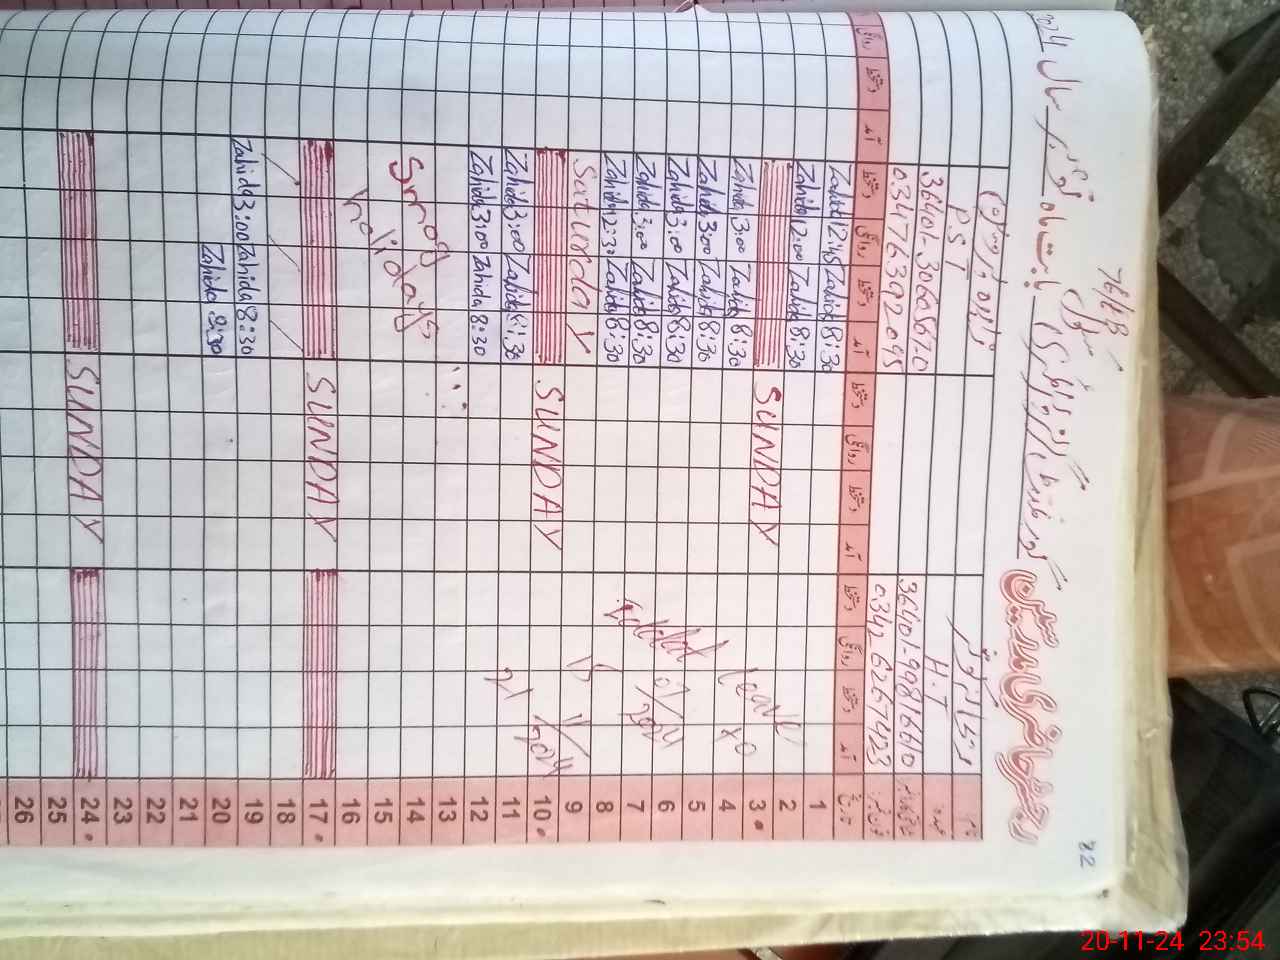 22
رجسٹر حاضری مدرسین
سال 2024
نام
H.T
P.S.T
36401-9981661-0
36401-3066567-0
03426267423
03476392095
تاریخ
آمد
دستخط
روانگی
دستخط
آمد
دستخط
روانگی
دستخط
آمد
دستخط
روانگی
دستخط
آمد
دستخط
روانگی
1 8:30 Zahida 12:45 Zahida
2 8:30 Zahida 12:00 Zahida
3. SUNDAY
4 8:30 Zahida 3:00 Zahida
5 8:30 Zahida 3:00 Zahida
6 8:30 Zahida 3:00 Zahida
7 8:30 Zahida 3:00 Zahida
8 8:30 Zahida 12:30 Zahida
9 Saturday
10. SUNDAY
11 8:30 Zahida 3:00 Zahida
12 8:30 Zahida 3:00 Zahida
13
14 Smog
15 holidays
16
17. SUNDAY
18
19 8:30 Zahida 3:00 Zahida
20 8:30 Zahida
21
22
23
24. SUNDAY
25
26
leave
20-11-24 23:54